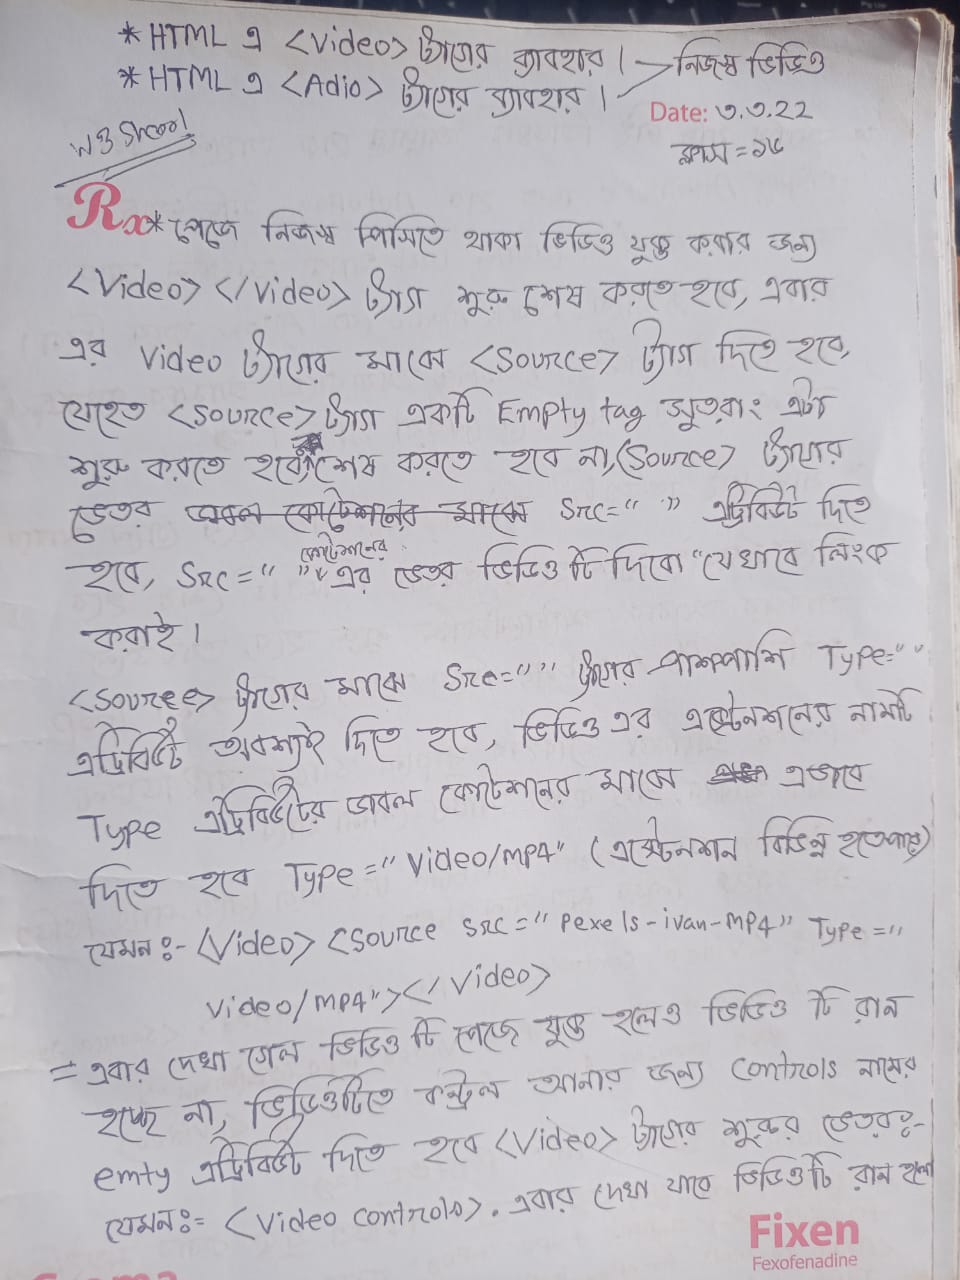 * HTML এ <Video> ট্যাগের ব্যবহার। → নিজস্ব ভিডিও
* HTML এ <Adio> ট্যাগের ব্যবহার।
Date: ৩.৩.22
ক্লাস = ১৫
W3 Shcool
Rx * পেজে নিজস্ব পিসিতে থাকা ভিডিও যুক্ত করার জন্য
<Video> </Video> ট্যাগ শুরু শেষ করতে হবে, এবার
এর Video ট্যাগের মাঝে <Source> ট্যাগ দিতে হবে,
যেহেত <Source> ট্যাগ একটি Empty tag সুতরাং এটা
শুরু করতে হবে, শেষ করতে হবে না, (Source> ট্যাগের
ভেতর ডাবল কোটেশনের মাঝে Src=" " এট্রিবিউট দিতে
হবে, Src=" " কোটেশনের এর ভেতর ভিডিও টি দিবো "যেভাবে লিংক
করাই।
<Source> ট্যাগের মাঝে Src="" ট্যাগের পাশপাশি Type=""
এট্রিবিউট অবশ্যই দিতে হবে, ভিডিও এর এক্সটেনশনের নামটি
Type এট্রিবিউটের ডাবল কোটেশনের মাঝে এভাবে
দিতে হবে Type="Video/mp4" (এক্সটেনশন বিভিন্ন হতেপারে)
যেমনঃ- <Video> <Source Src="Pexels-ivan-MP4" Type="
Video/MP4"></Video>
= এবার দেখা গেল ভিডিও টি পেজে যুক্ত হলেও ভিডিও টি রান
হচ্ছে না, ভিডিওটিতে কন্ট্রল আনার জন্য Controls নামের
emty এট্রিবিউট দিতে হবে <Video> ট্যাগের শুরুর ভেতরঃ-
যেমনঃ= <Video Controls>. এবার দেখা যাবে ভিডিওটি রান হলো
Fixen
Fexofenadine